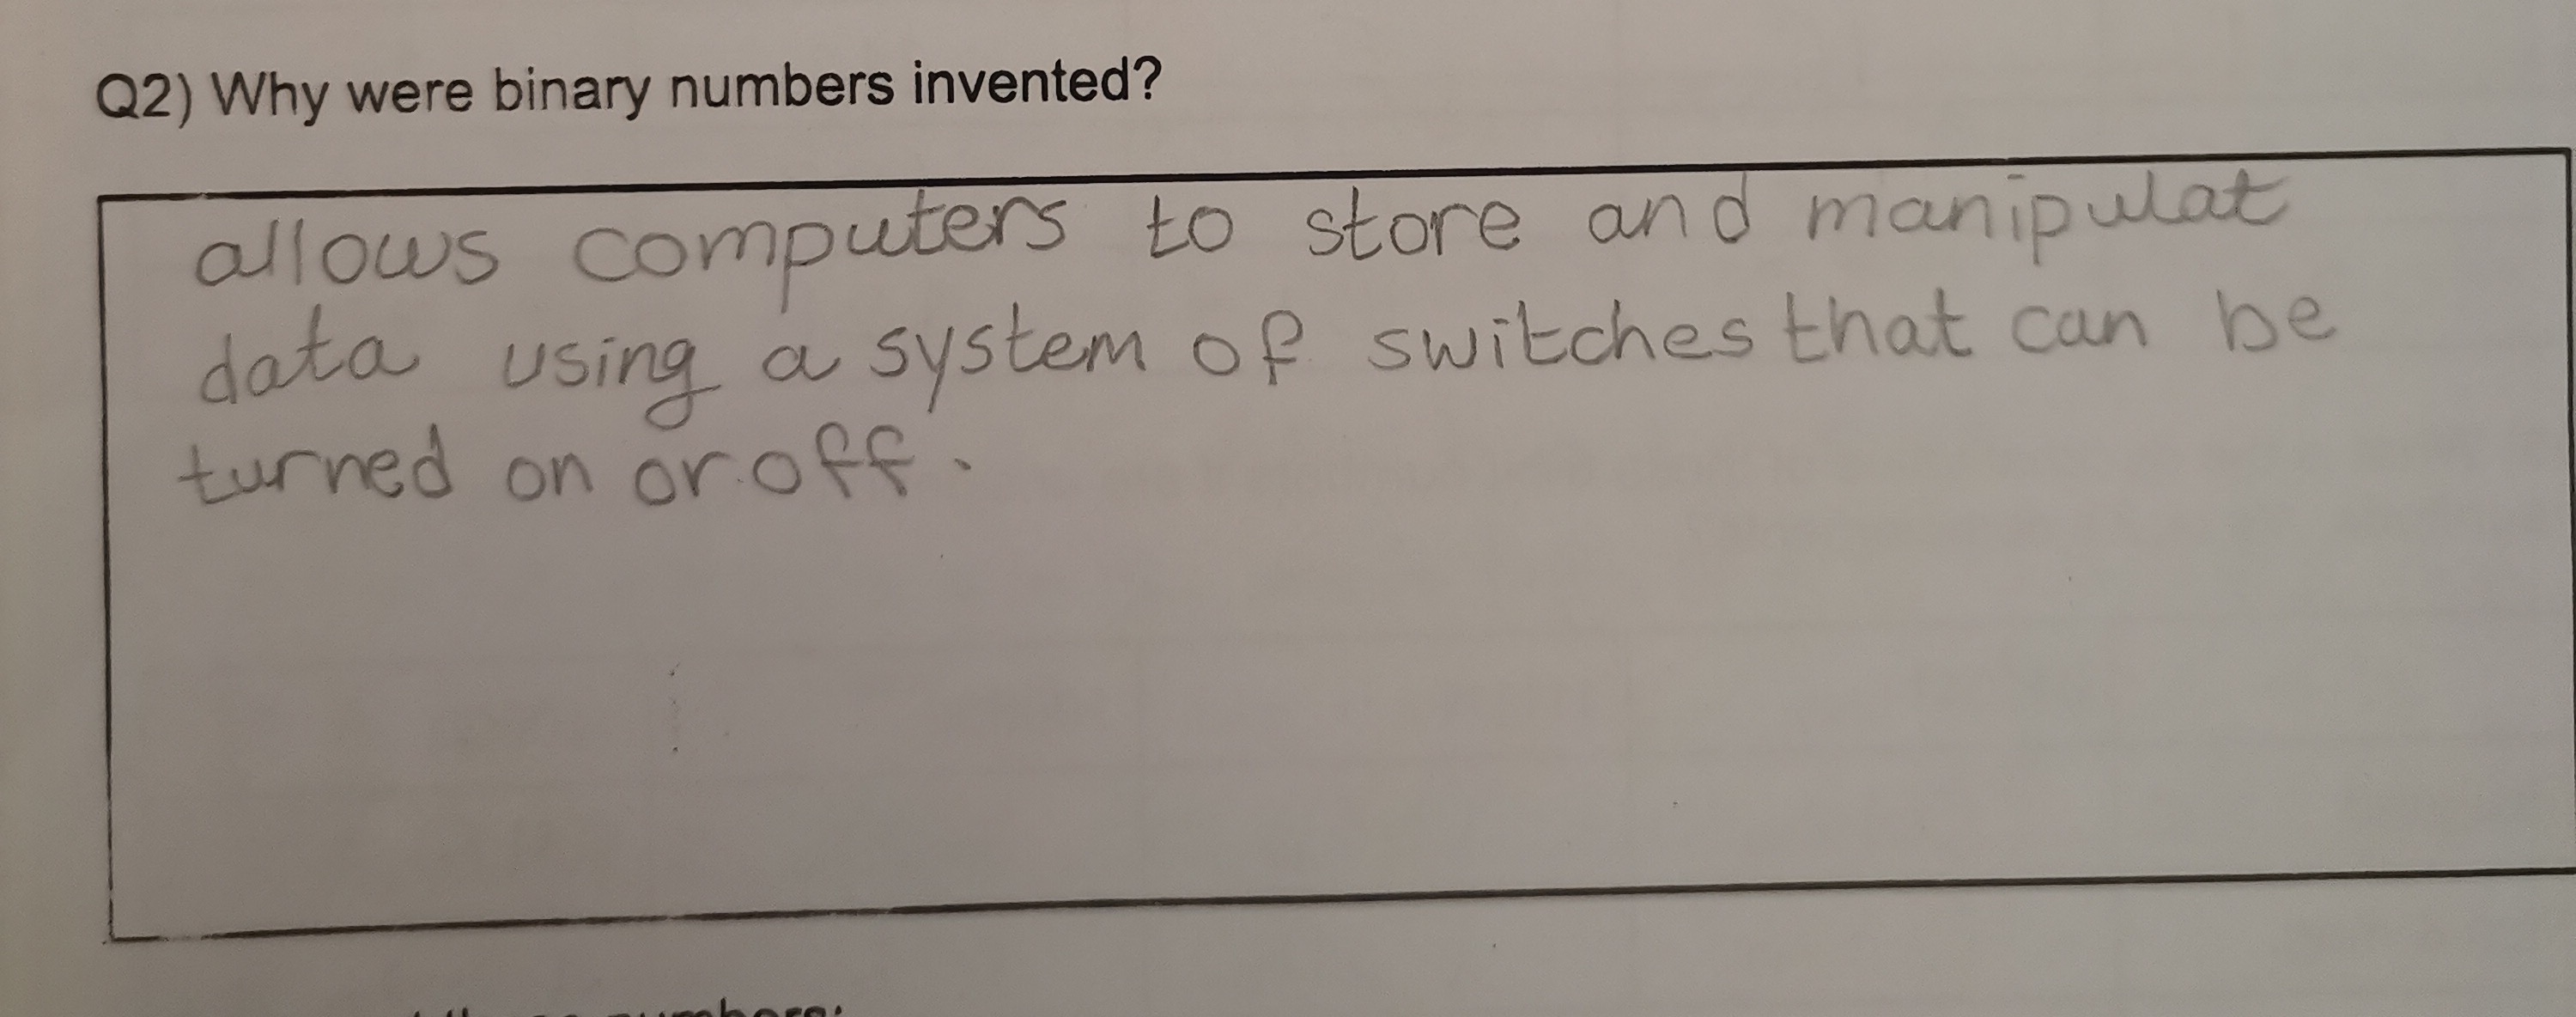 Q2) Why were binary numbers invented?
allows computers to store and manipulat
data using a system of switches that can be
turned on or off.
numbers: